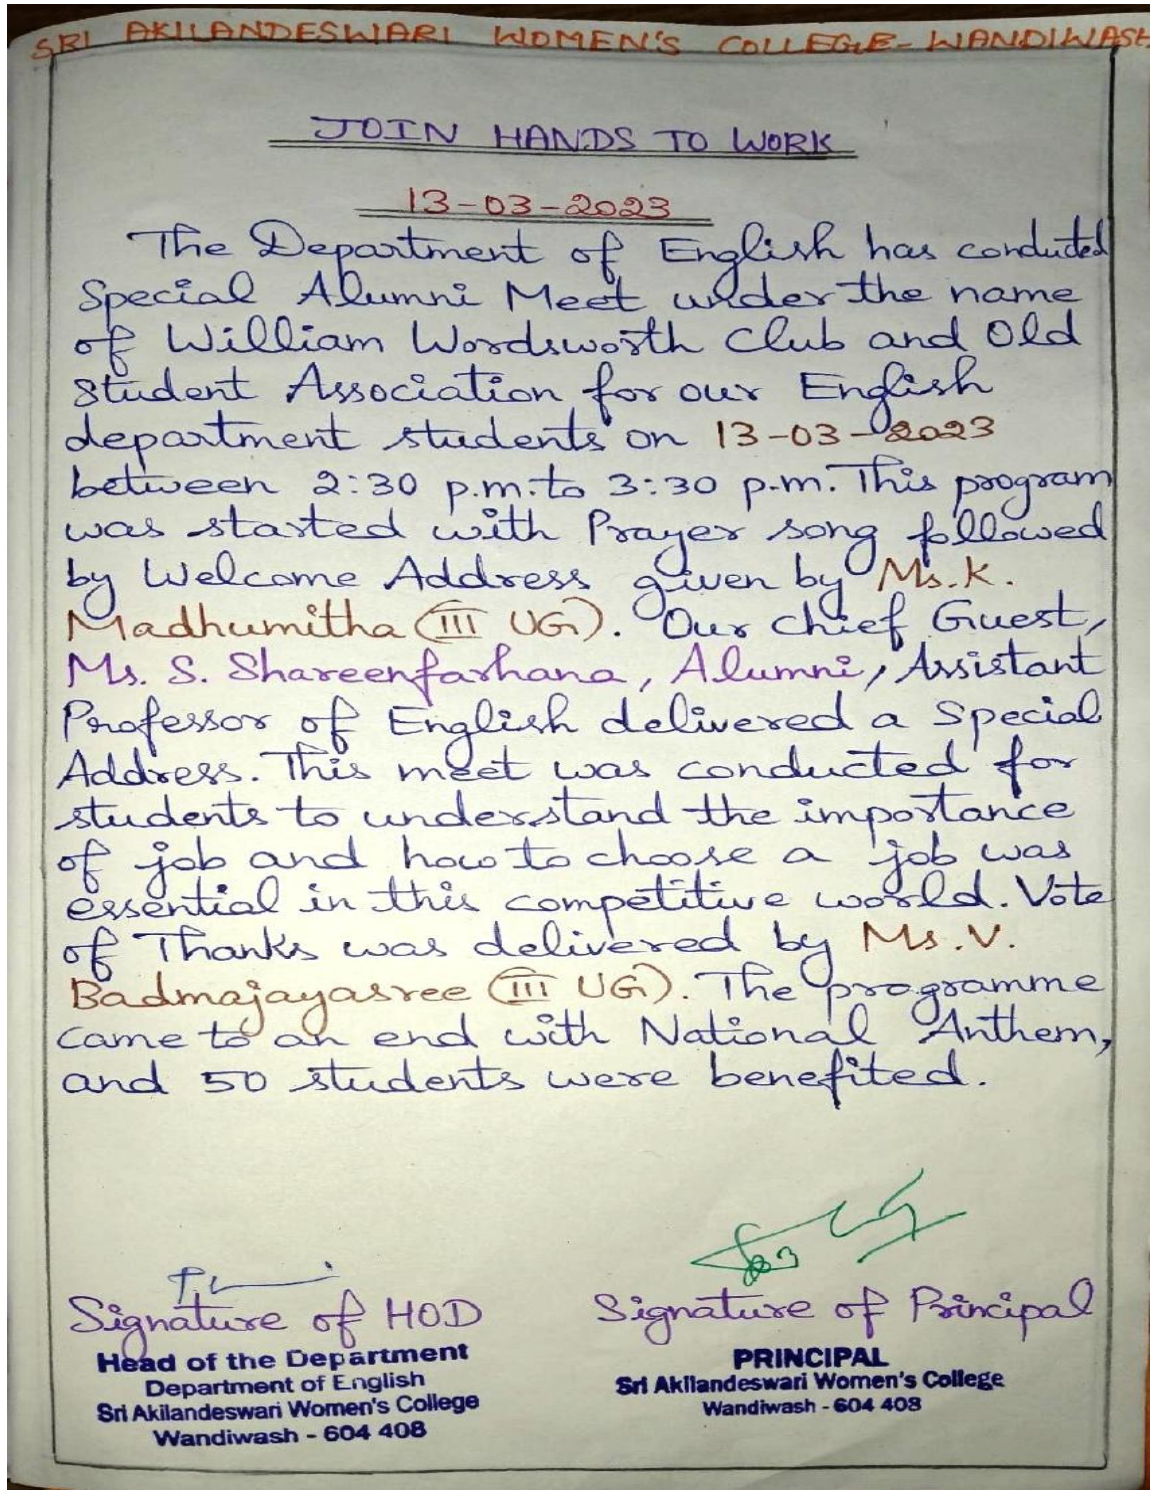 SRI AKILANDESWARI WOMEN'S COLLEGE - WANDIWASH
JOIN HANDS TO WORK
13-03-2023
The Department of English has conducted
Special Alumni Meet under the name
of William Wordsworth Club and Old
Student Association for our English
department students on 13-03-2023
between 2:30 p.m. to 3:30 p.m. This program
was started with Prayer song followed
by Welcome Address given by Ms. K.
Madhumitha (III UG). Our chief Guest,
Ms. S. Shareenfarhana, Alumni, Assistant
Professor of English delivered a Special
Address. This meet was conducted for
students to understand the importance
of job and how to choose a job was
essential in this competitive world. Vote
of Thanks was delivered by Ms. V.
Badmajayasree (III UG). The programme
came to an end with National Anthem,
and 50 students were benefited.
Signature of HOD
Head of the Department
Department of English
Sri Akilandeswari Women's College
Wandiwash - 604 408
Signature of Principal
PRINCIPAL
Sri Akilandeswari Women's College
Wandiwash - 604 408